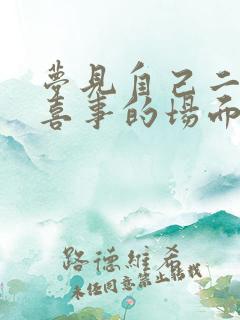 夢見自己二
喜事的場面
路德維希
未经同意禁止转载